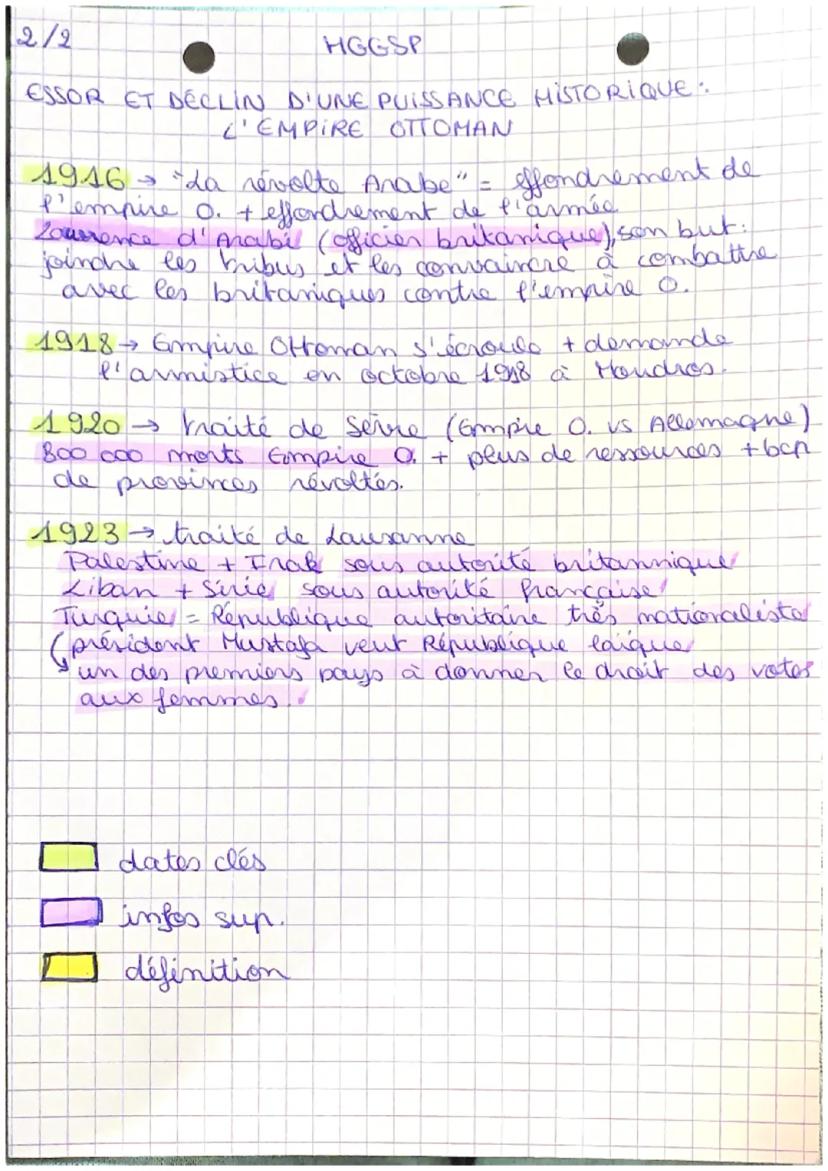 2/2
HGGSP
ESSOR ET DÉCLIN D'UNE PUISSANCE HISTORIQUE :
L'EMPIRE OTTOMAN
1916 → "La révolte Arabe" = effondrement de
l'empire O. + effondrement de l'armée
Lawrence d'Arabi (officier britanique), son but :
joindre les tribus et les convaincre à combattre
avec les britaniques contre l'empire O.
1918 → Empire Ottoman s'écroule + demande
l'armistice en octobre 1918 à Moudros.
1920 → traité de Sèvre (Empire O. vs Allemagne)
800 000 morts Empire O. + plus de ressources + bcp
de provinces révoltés.
1923 → traité de Lausanne
Palestine + Irak sous autorité britannique
Liban + Sirie sous autorité française
Turquie = République autoritaire très nationaliste
(président Mustafa veut République laïque
↳ un des premiers pays à donner le droit des votes
aux femmes.
dates clés
infos sup.
définition